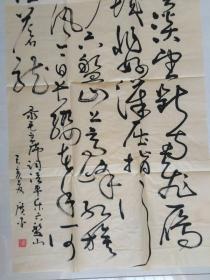 淡望断南飞雁
城非好汉屈指
六盘山上高峰红旗
风今日长缨在手何
住苍龙
录毛主席词清平乐六盘山